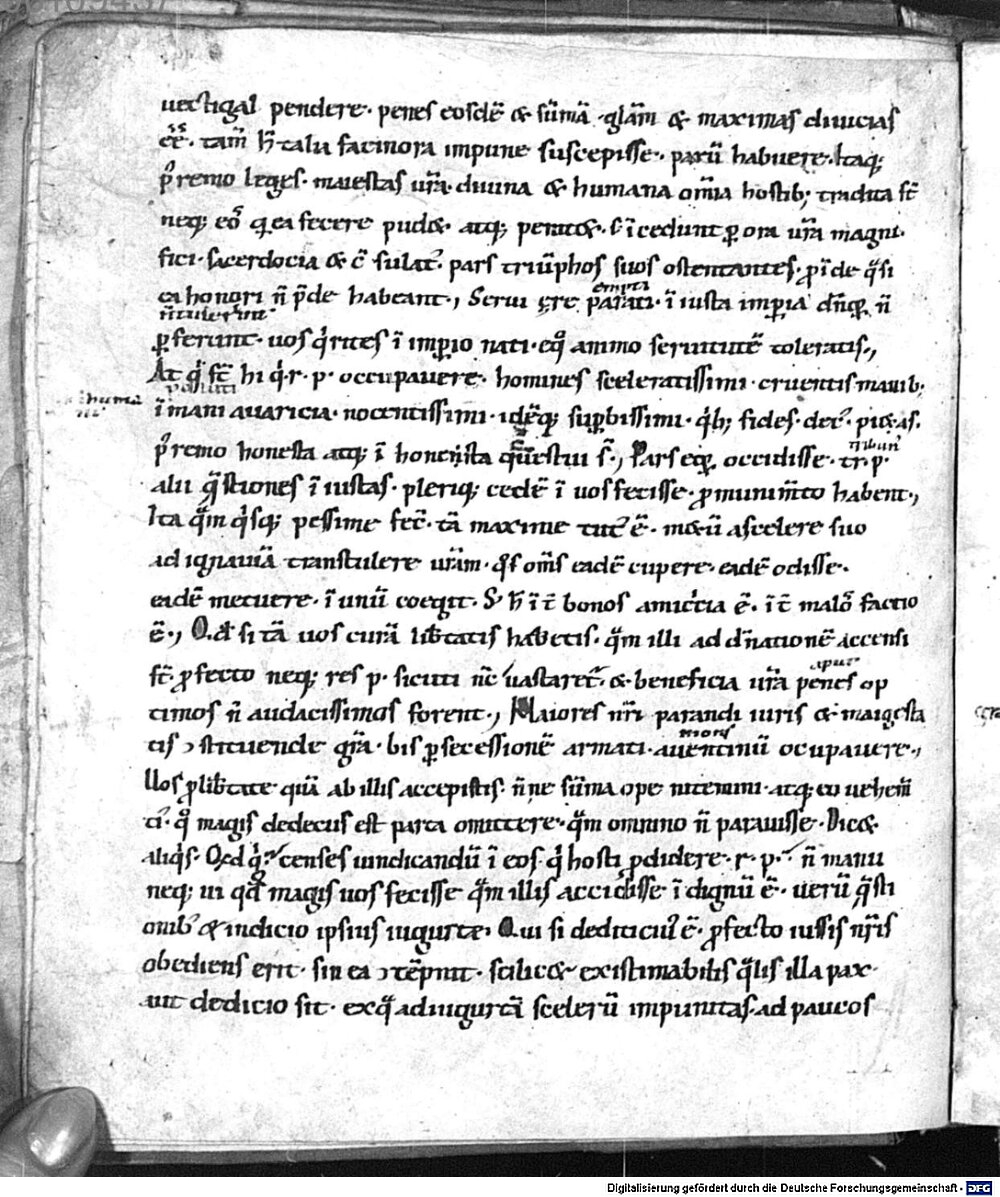 uectigal pendere· penes eosdē & sūmā glām & maximas diuicias
eē· tam̄ h̄ talia facinora impune suscepisse· parū habuere· Itaq;
p̊remo leges· maiestas ur̄a· diuina & humana om̄ia hostib; tradita st̄
neq; eos̄ q ea fecere pud& atq; penit&· s; īcedunt ꝑ ora ur̄a magni
fici· sacerdocia & c̄sulat᷒· pars triūphos suos ostentantes· ꝓīde q̄si
empti
ea honori n̄ p̄de habeant·, Serui ęre parati· ī iusta imꝑia dn̄oꝝ n̄
n̄ tulerint
ꝑferunt· uos q̇rites ī imꝑio nati· eq̊ animo seruitutē toleratis·,
At q̇ st̄ hi q̇·r·p· occupauere· homines sceleratissimi· cruentis manib;
polluti
īmani auaricia· nocentissimi· idēq; suꝑbissimi· q̇b; fides· dec᷒· pi&as·
p̊remo honesta atq; ī honesta questui s̄·, Pars eoꝝ occidisse· tr·p·
tribun̄
alii q̄stiones ī iustas· pleriq; cedē ī uos fecisse· ꝓ munim̄to habent·,
Ita q̄m q̇sq; pessime fec̄· tā maxime tut᷒ ē· m&ū a scelere suo
ad ignauiā transtulere ur̄am· q̊s om̄s eadē cupere· eadē odisse·
eadē metuere· ī unū coegit· S; h̄ īt̄ bonos amicicia ē· īt̄ malos̄ factio
ē·, Qd̄ si tā uos curā lib̄tatis hab&is· q̄m illi ad dn̄ationē accensi
apud
st̄ ꝓfecto neq; res p· sicuti nc̄ uastaret᷒· & beneficia ur̄a penes op
timos n̄ audacissimos forent·, Maiores nr̄i parandi iuris & maiesta
mons
tis ɔstituende gr̄a· bis ꝑ secessionē armati· auentinū ocupauere·,
Uos ꝓ lib̄tate quā ab illis accepistis· n̄ne sūma ope nitemini· atq; eo uehem̄
ti᷒· q̊ magis dedecus est parta omittere· q̄m omnino n̄ parauisse· Dic&
aliq̇s· Qd q̇· censes uindicandū ī eos· q̇ hosti ꝓdidere· r·p· n̄ manu
neq; ui qd̄ magis uos fecisse q̄m illis accidisse īdignū ē· uerū q̄sti
onib᷒ & indicio ipsius iugurtę· Qui si dediticiu᷒ ē· ꝓfecto iussis nr̄is
obediens erit· sin ea ɔtēpnit· scilic& existimabitis q̄lis illa pax
aut dedicio sit· ex q̄ ad iugurtā scelerū impunitas· ad paucos
Digitalisierung gefördert durch die Deutsche Forschungsgemeinschaft - DFG